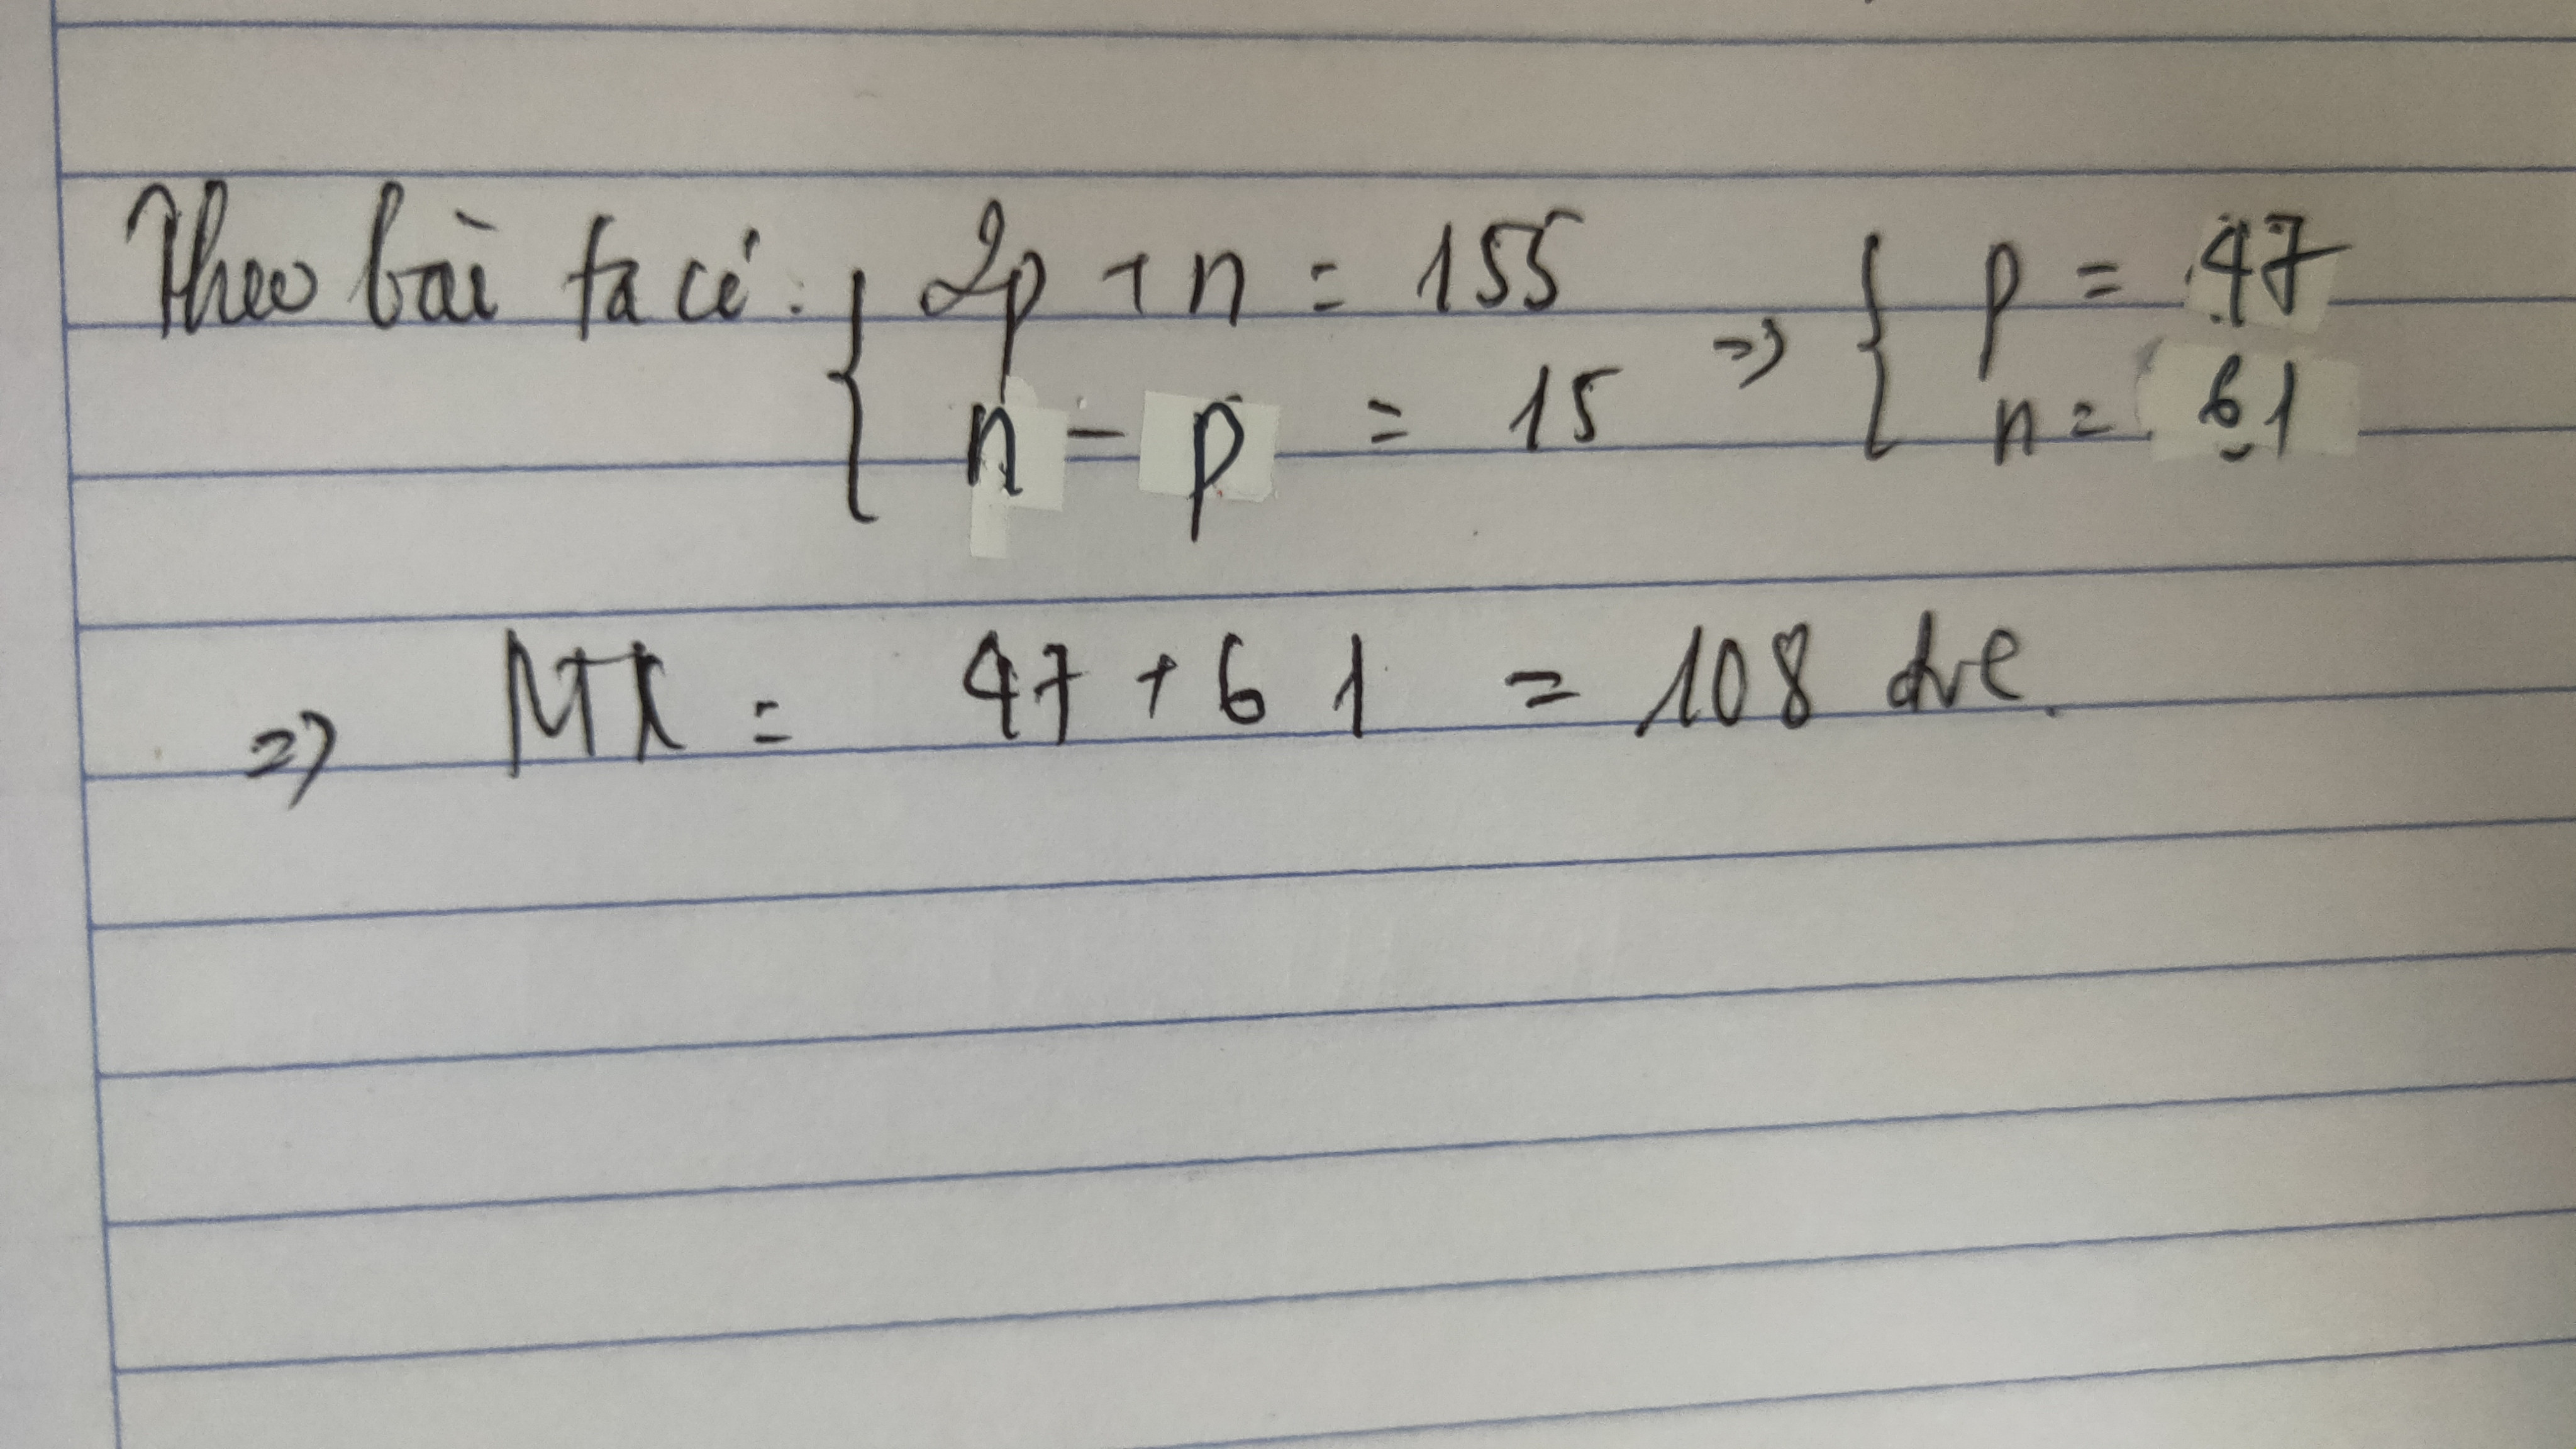 Theo bài ta có: { 2p + n = 155 => { p = 47
n - p = 15 n = 61
=> MX = 47 + 61 = 108 đvc.